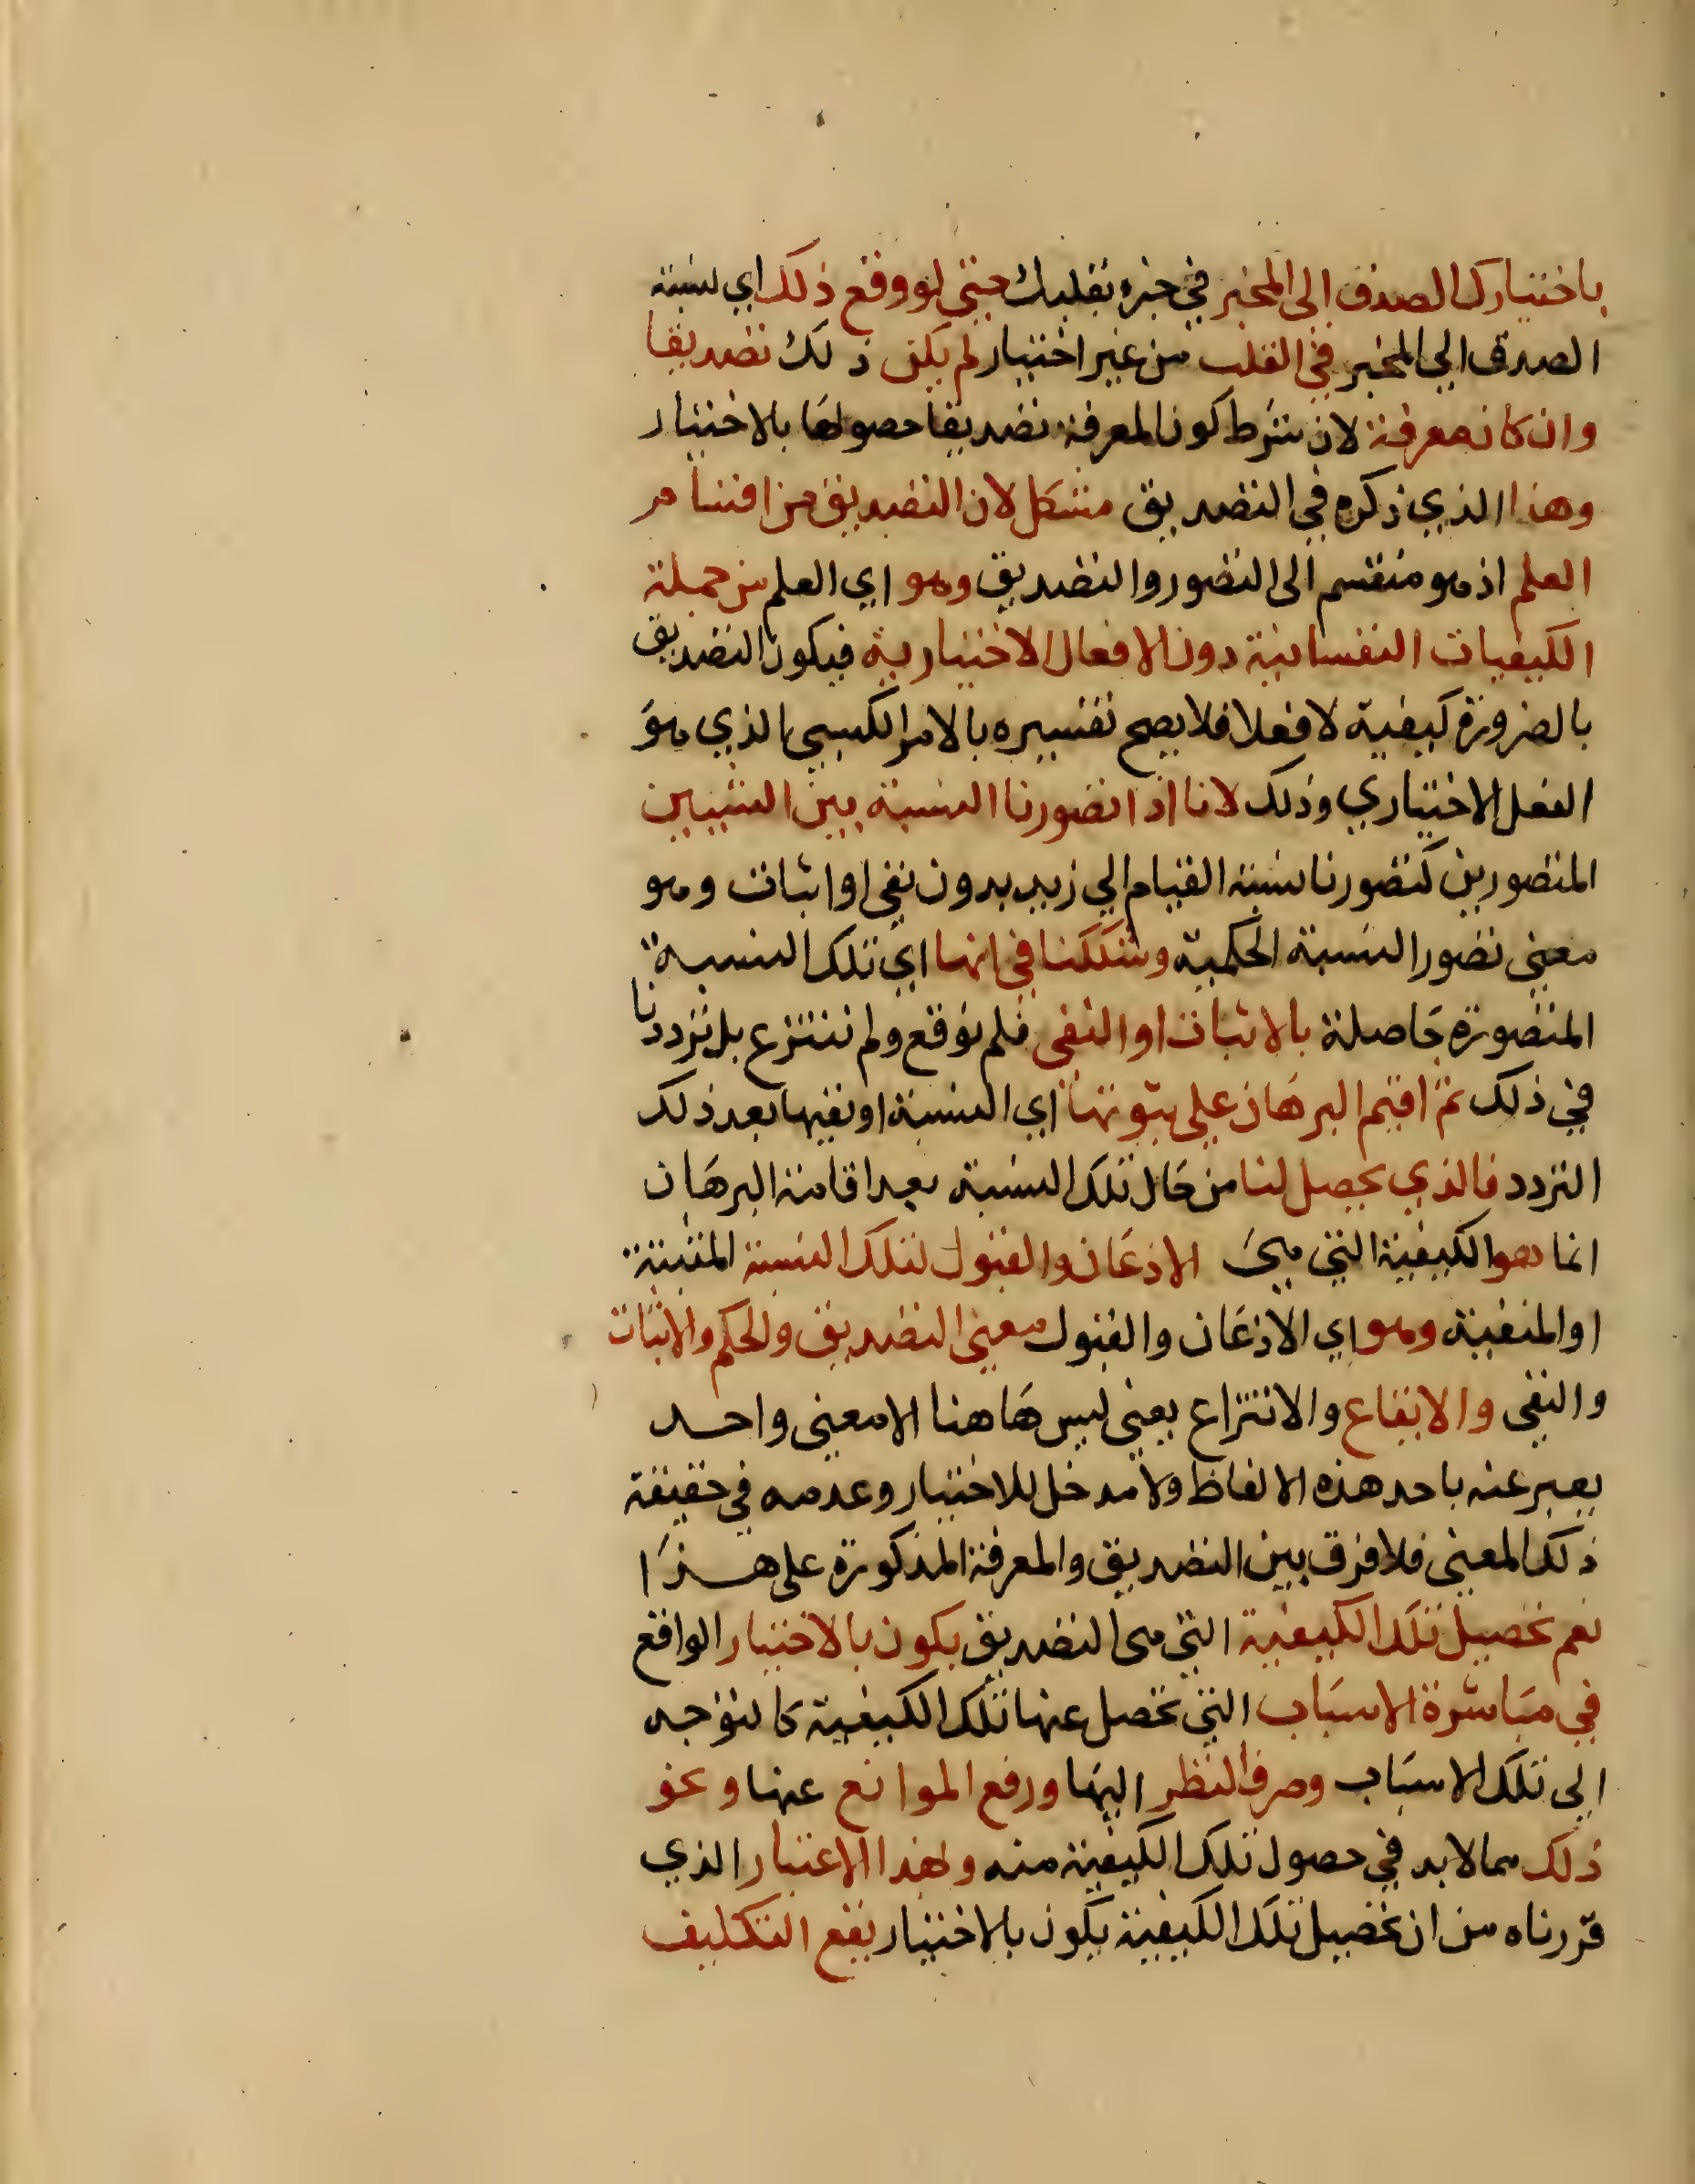 باختيارك الصدق الى المخبر في خبره بقلبك حتى لو وقع ذلك اي نسبة
الصدق الي المخبر في القلب من غير اختيار لم يكن ذلك تصديقا
وان كان معرفة لان شرط كون المعرفة تصديقا حصولها بالاختيار
وهذا الذي ذكره في التصديق مشكل لان التصديق من اقسام
العلم اذ هو منقسم الى التصور والتصديق وهو اي العلم من جملة
الكيفيات النفسانية دون الافعال الاختيارية فيكون التصديق
بالضرورة كيفية لا فعلا فلا يصح تفسيره بالامر الكسبي الذي هو
الفعل الاختياري وذلك لانا اذا تصورنا النسبة بين الشيين
المتصورين كتصورنا نسبة القيام الي زيد بدون نفي او اثبات وهو
معني تصور النسبة الحكمية وشككنا في انها اي تلك النسبة
المتصورة حاصلة بالاثبات او النفي فلم نوقع ولم ننتزع بل ترددنا
في ذلك ثم اقيم البرهان علي ثبوتها اي النسبة او نفيها بعد ذلك
التردد فالذي يحصل لنا من حال تلك النسبة بعد اقامة البرهان
انما هو الكيفية التي هي الاذعان والقبول لتلك النسبة المثبتة
او المنفية وهو اي الاذعان والقبول معني التصديق والحكم والاثبات
والنفي والايقاع والانتزاع يعني ليس هاهنا الا معني واحد
يعبر عنه باحد هذه الالفاظ ولا مدخل للاختيار وعدمه في حقيقة
ذلك المعني فلا فرق بين التصديق والمعرفة المذكورة على هذا
نعم تحصيل تلك الكيفية التي هي التصديق يكون بالاختيار الواقع
في مباشرة الاسباب التي تحصل عنها تلك الكيفية كالتوجه
الي تلك الاسباب وصرف النظر اليها ورفع الموانع عنها ونحو
ذلك مما لا بد في حصول تلك الكيفية منه ولهذا الاعتبار الذي
قررناه من ان تحصيل تلك الكيفية يكون بالاختيار يقع التكليف